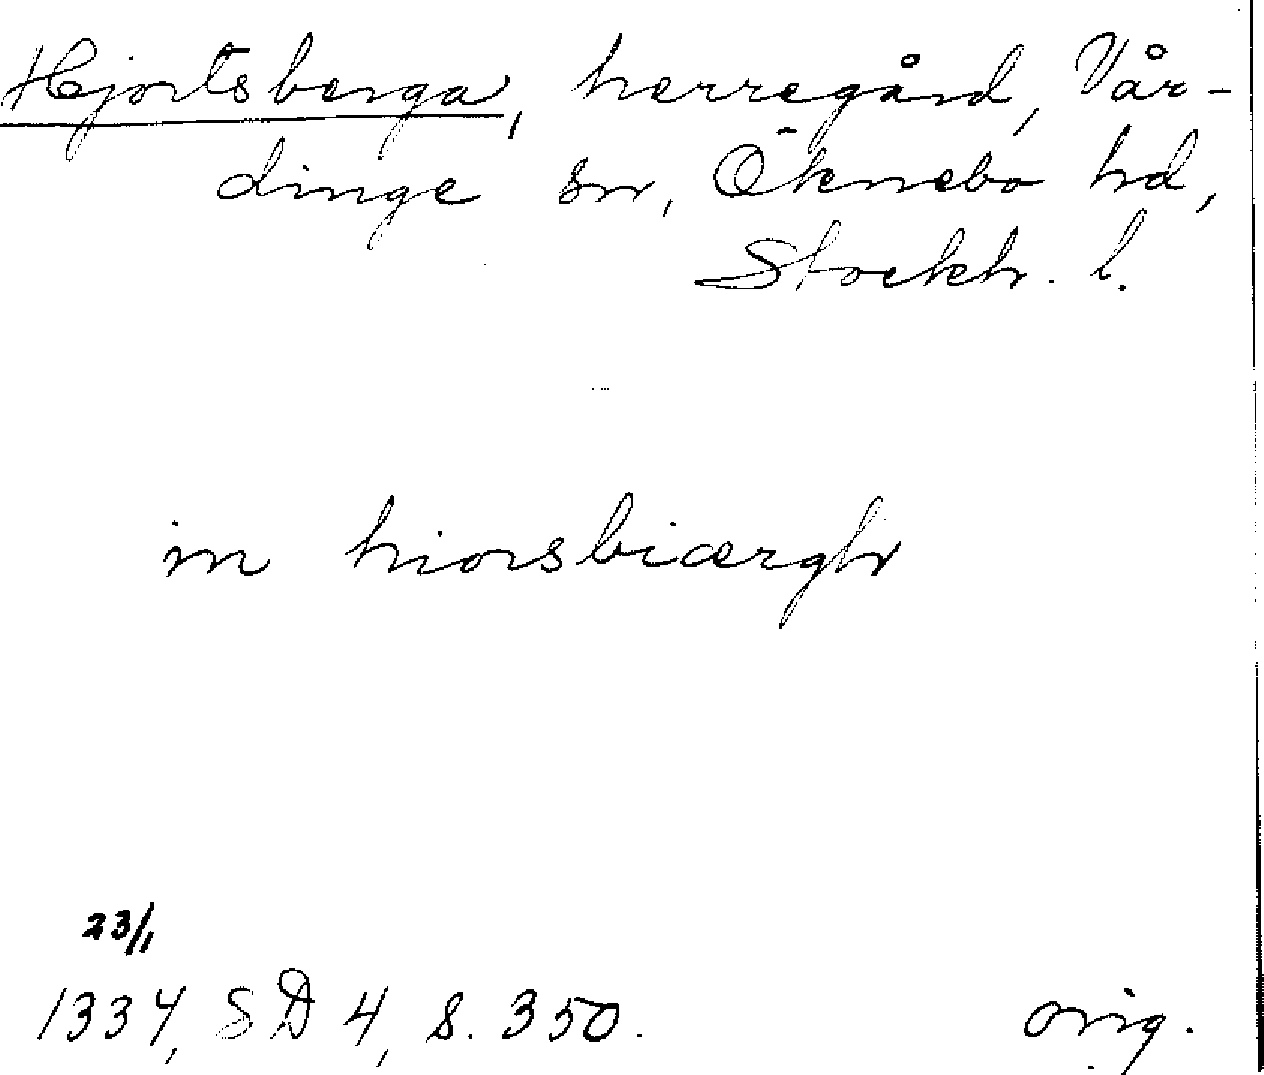 Hjortsberga, herregård, Vår-
dinge sn, Öknebo hd,
Stockh. l.
in hiorsbiærgh
23/1
1334, SD 4, s. 350.
orig.